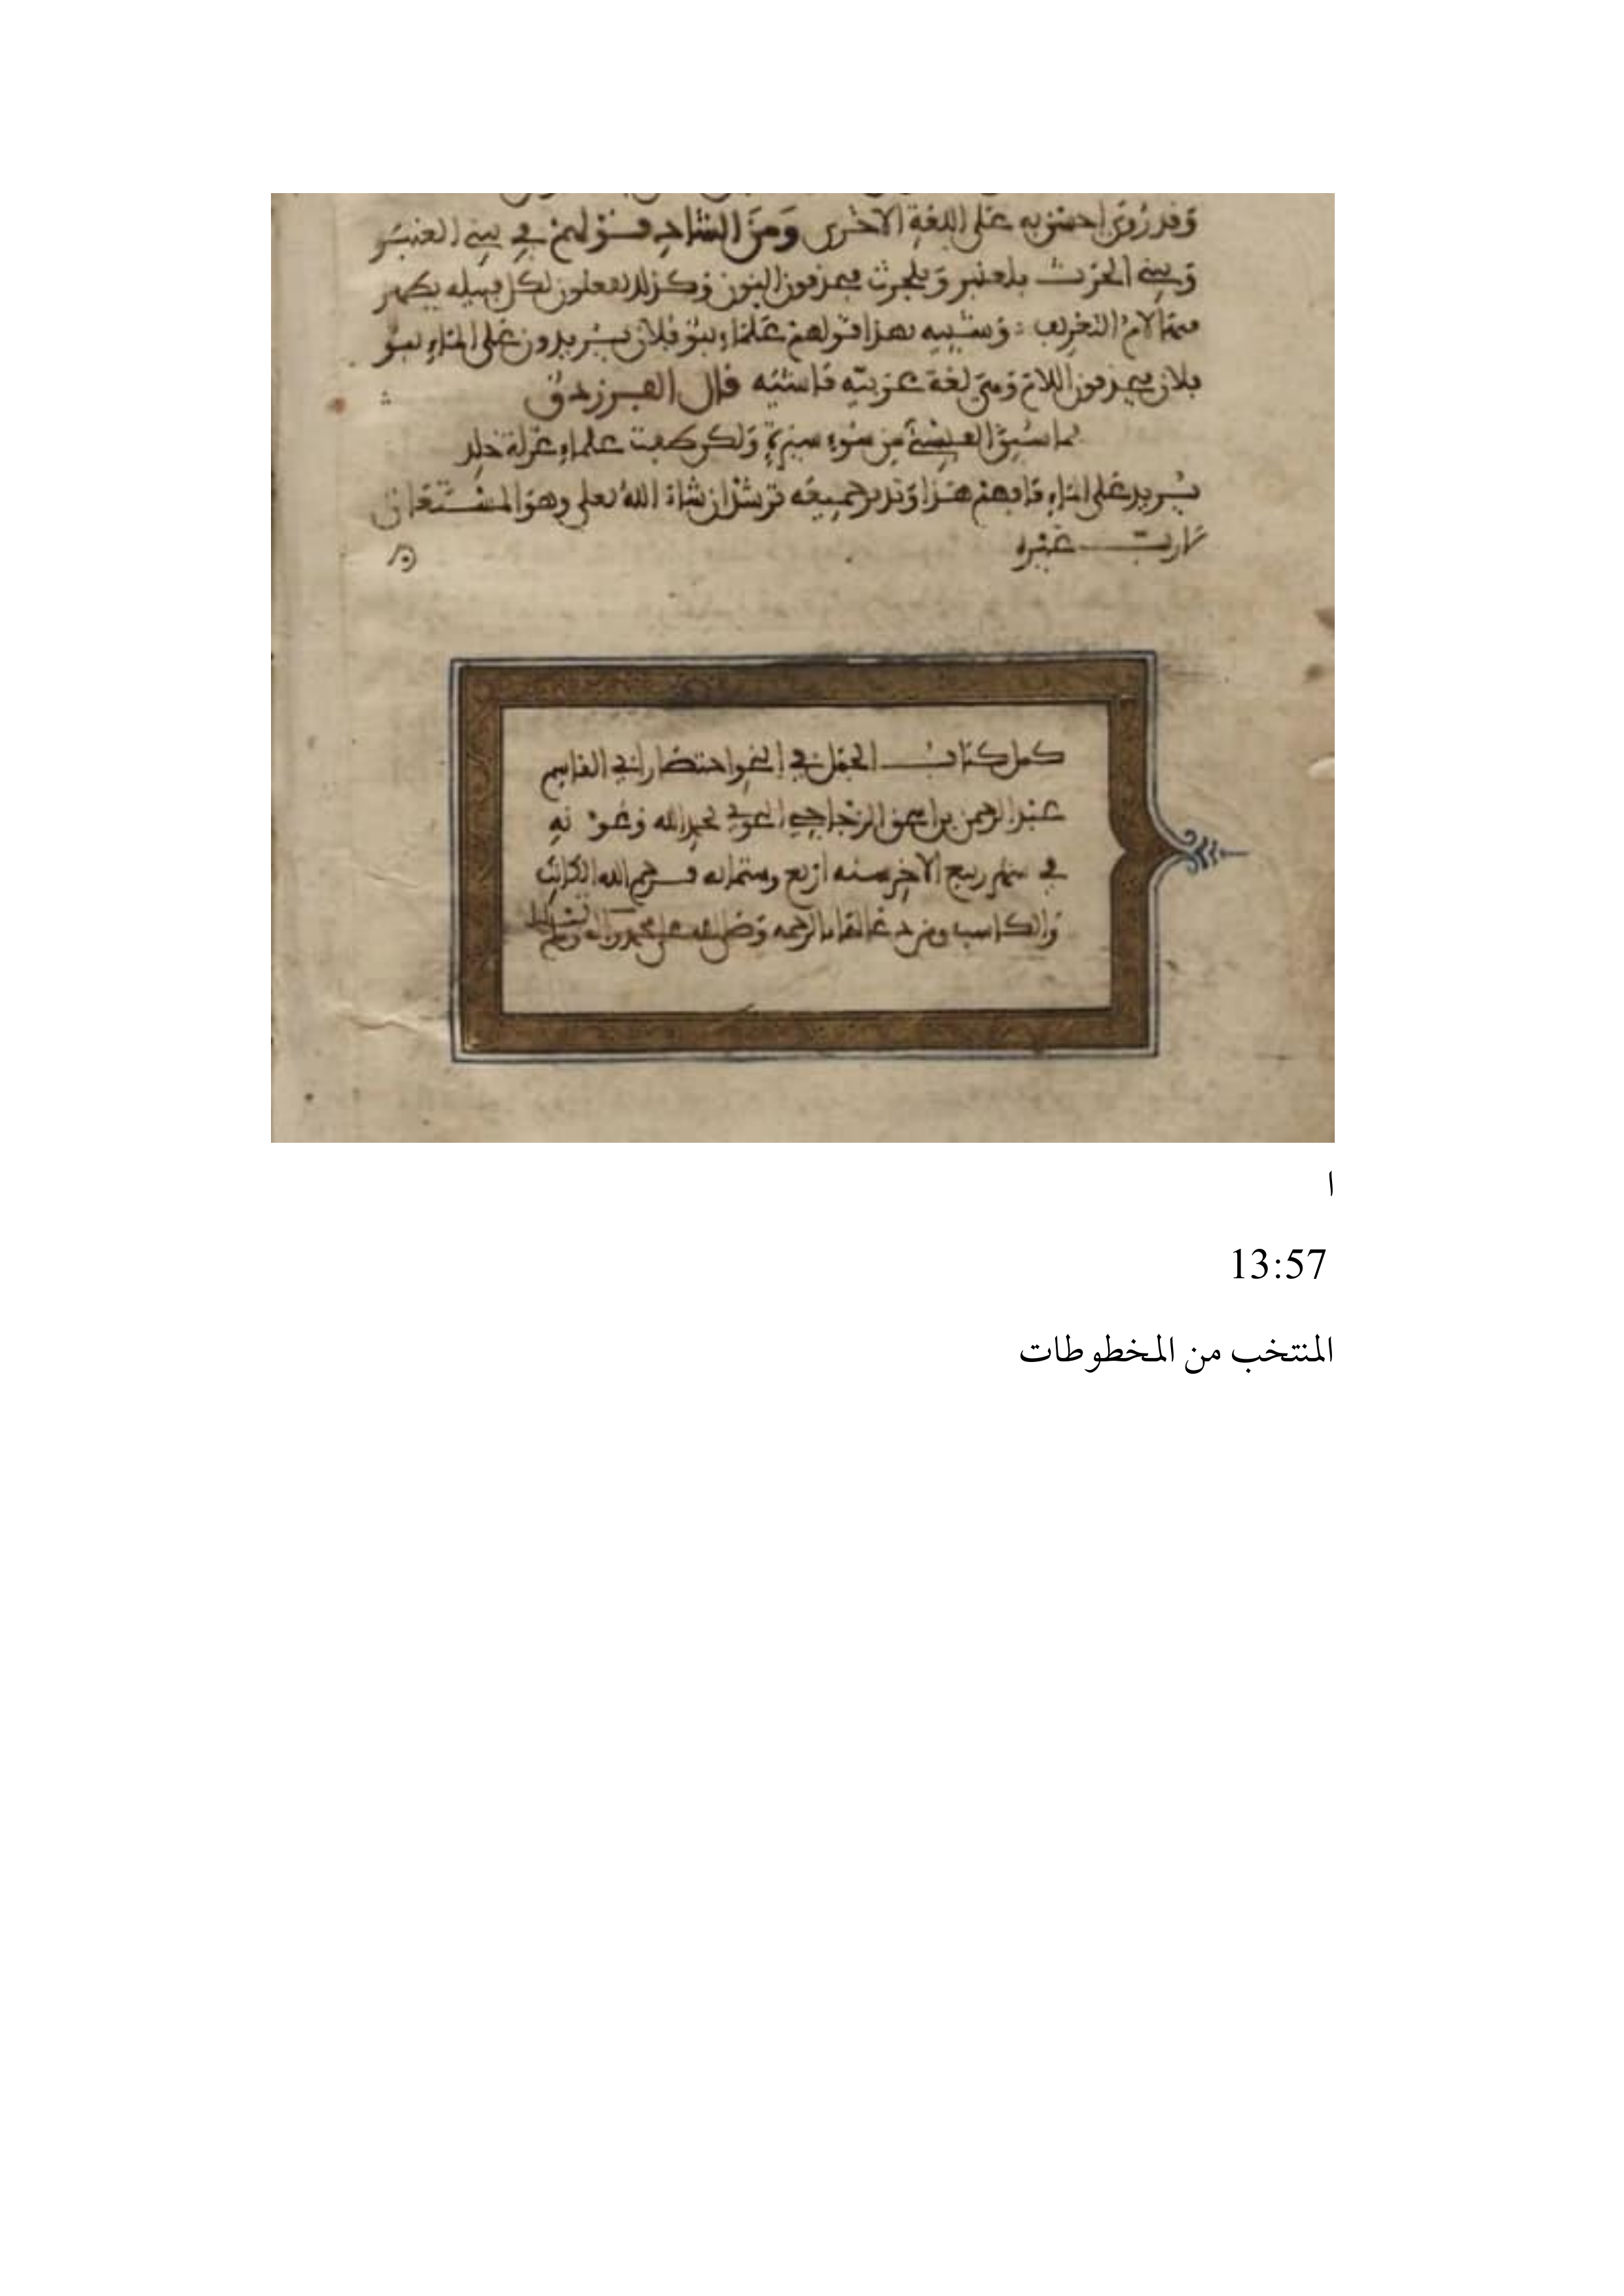 وقد روي احسن به على اللغة الاخرى ومن الشاذ قولهم في بني العنبر
وبني الحرث بلعنبر وبلحرث فيحذفون النون وكذلك يفعلون لكل قبيله يظهر
فيها لام التعريف وشبيه بهذا قولهم علماء بنو فلان يريدون على الماء بنو
فلان فيحذفون اللام وهي لغة عربيه فاشيه قال الفرزدق
فما سبق القيسي من سوء سيرة ولكن طفت علماء غرلة خلد
يريد على الماء فافهم هذا وتدبر جميعه ترشد ان شاء الله تعلى وهو المستعان
لا رب غيره
كمل كتاب الجمل في النحو اختصار ابي القاسم
عبد الرحمن بن اسحق الزجاجي النحوي بحمد الله وعونه
في شهر ربيع الاخر سنه اربع وستمائه فرحم الله الكاتب
والكاسب ومن دعا لهما بالرحمه وصلى الله على محمد واله وسلم
ا
13:57
المنتخب من المخطوطات